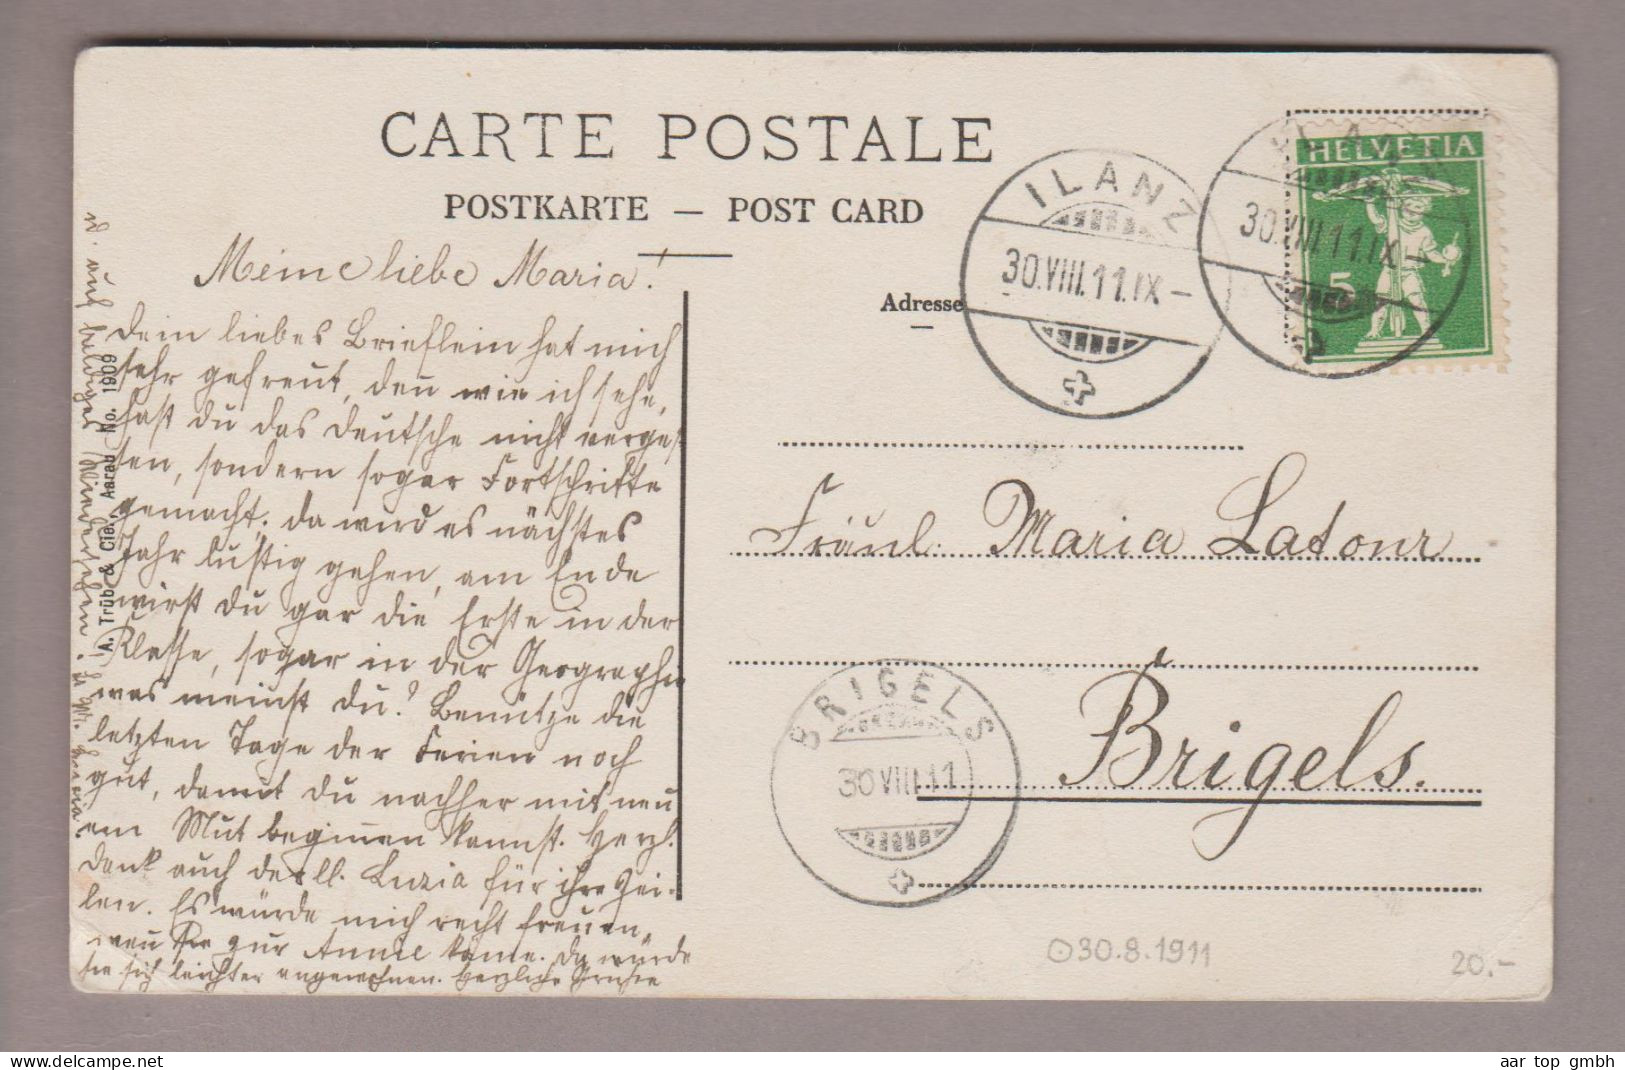 CARTE POSTALE
POSTKARTE — POST CARD
Adresse
ILANZ
30.VIII.11.IX-
30.VIII.11.IX-
HELVETIA
5
Meine liebe Maria!
Dein liebes Brieflein hat mich
sehr gefreut, den wie ich sehe,
hast du das Deutsche nicht verges-
sen, sondern sogar Fortschritte
gemacht. Da wird es nächstes
Jahr lustig gehen, am Ende
wirst du gar die Erste in der
Klasse, sogar in der Geographie
was meinst du? Benütze die
letzten Tage der Ferien noch
gut, damit du nachher mit neu
em Mut beginnen kannst. Herzl.
Dank auch der ll. Luzia für ihre Zei-
len. Es würde mich recht freuen,
wen sie zur Annie käme. Da würde
sie sich leichter angewöhnen. Herzliche Grüsse
u. auf baldiges Wiedersehen!
A. Trüb & Cie. Aarau No. 1909
Fräul. Maria Latour
Brigels.
BRIGELS
30.VIII.11
30.8.1911
20.-
aar top gmbh